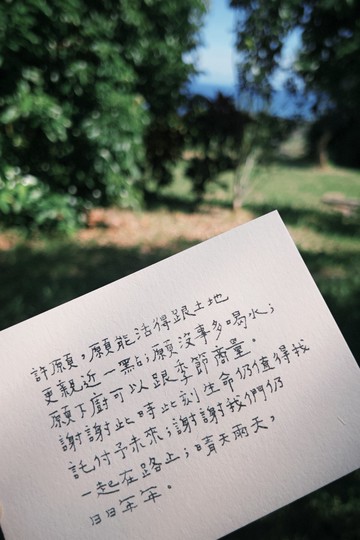 許願，願能活得跟土地
更親近一點；願沒事多喝水；
願下廚可以跟季節商量。
謝謝此時此刻生命仍值得我
託付予未來；謝謝我們仍
一起在路上；晴天雨天，
日日年年。